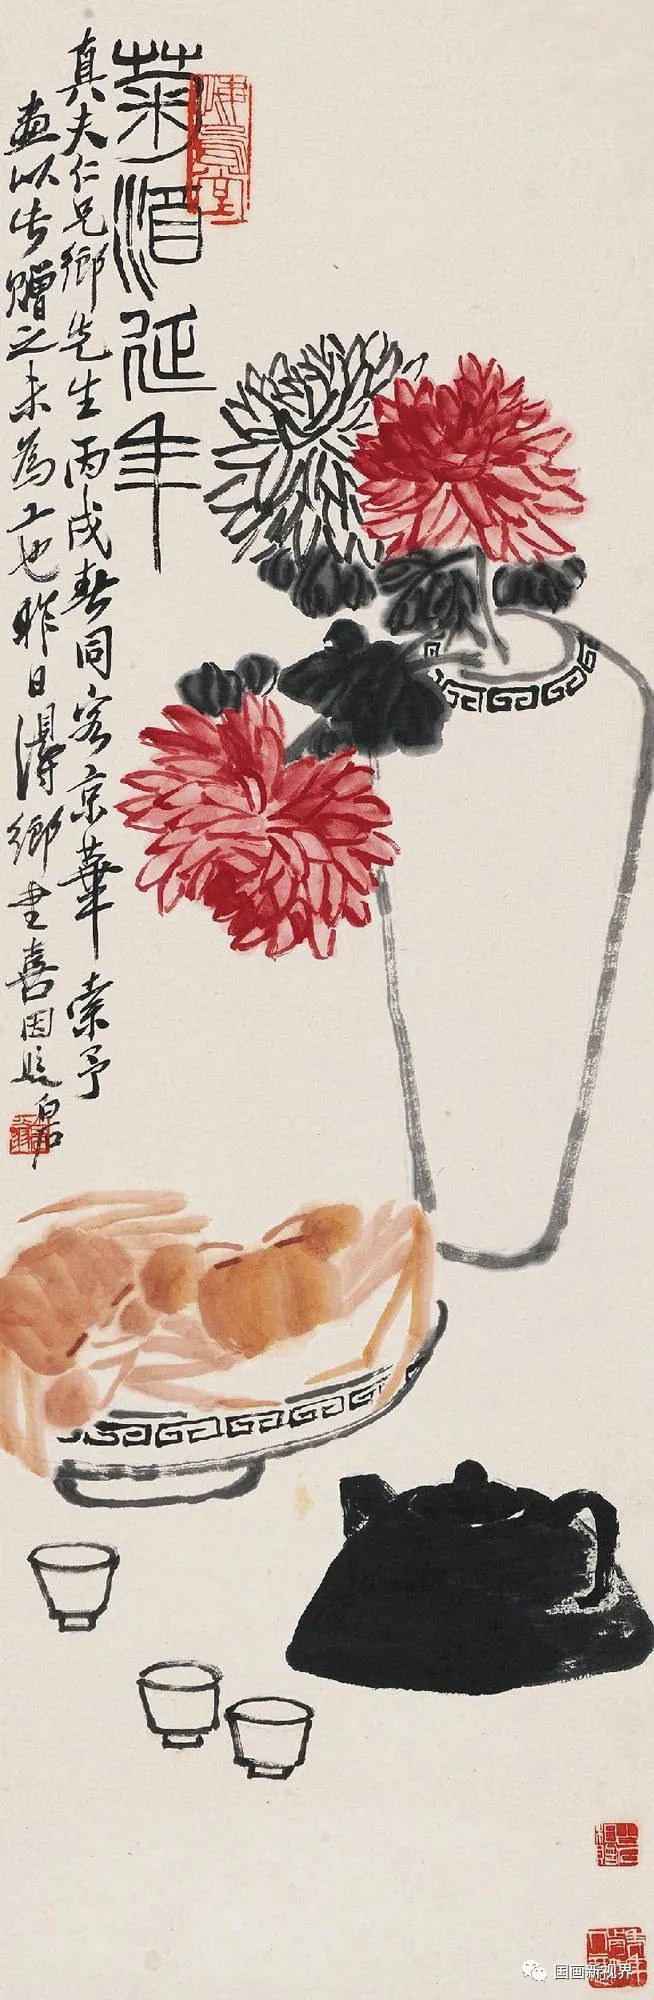 菊酒延年
真夫仁兄鄉先生丙戌春同客京華索予
畫以此贈之未為工也昨日得鄉書喜因 白石
悔烏堂
国画新视界